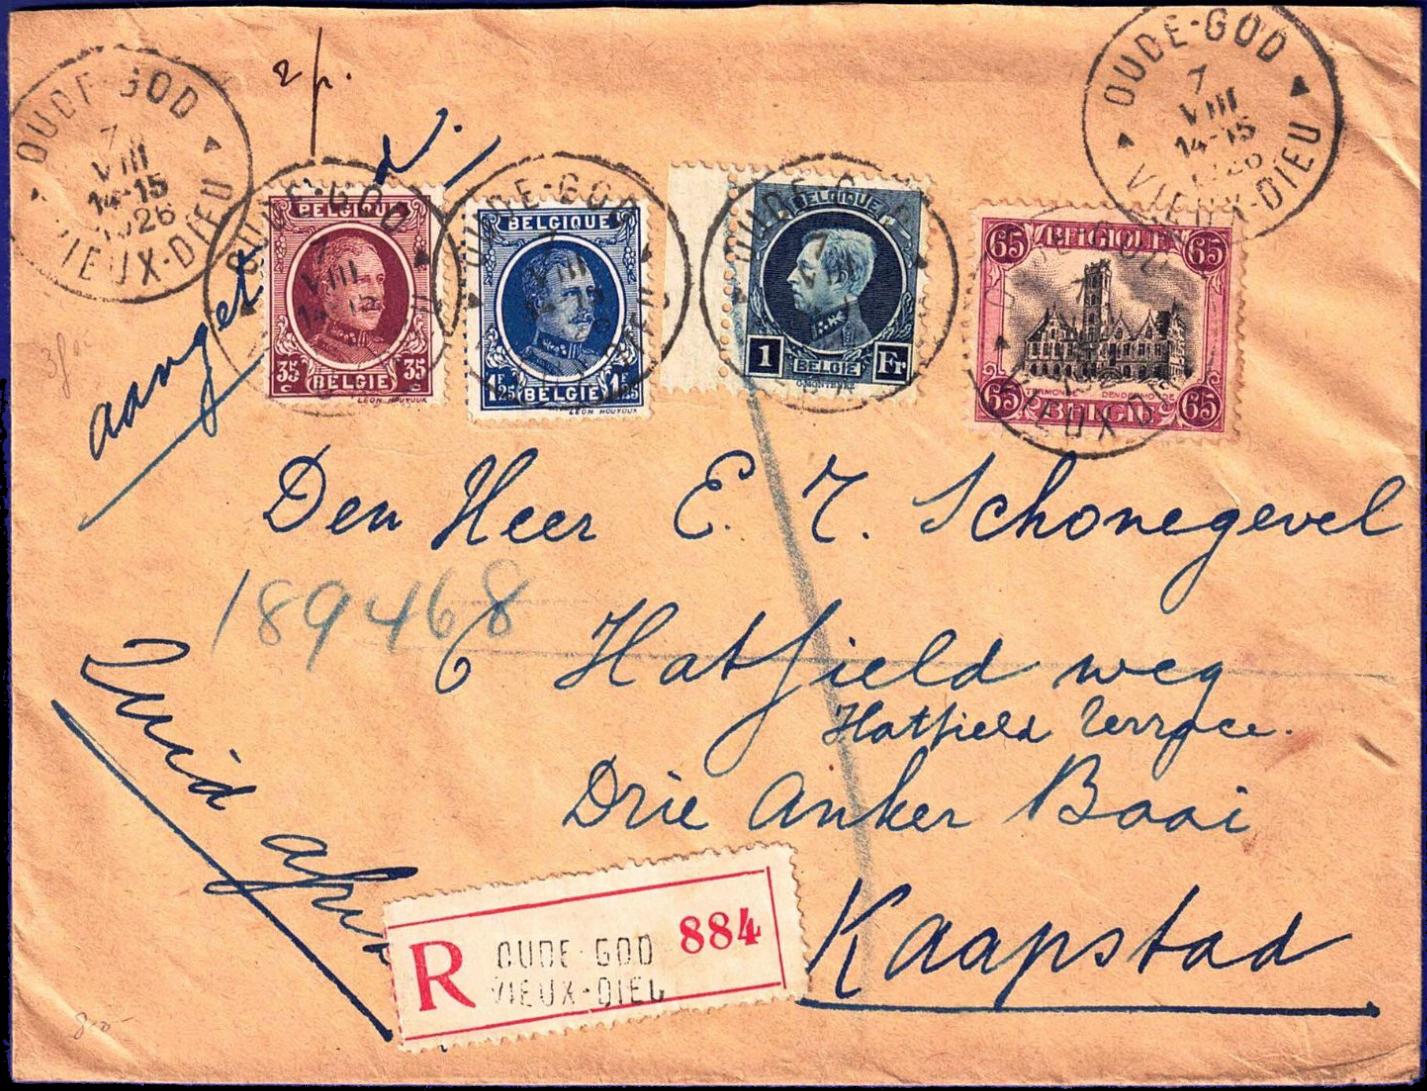 OUDE-GOD
7
VIII
14-15
1926
VIEUX-DIEU
2/p.
OUDE-GOD
7
VIII
14-15
1926
VIEUX-DIEU
BELGIQUE
35 35
C C
BELGIE
LEON HOUYOUX
BELGIQUE
1F25 1F25
BELGIE
LEON HOUYOUX
BELGIQUE
1 Fr
BELGIE
65 BELGIQUE 65
65 BELGIE 65
aanget
Den Heer E. 7. Schonegevel
189468
6 Hatfield weg
Hatfield Terrace.
Drie Anker Baai
Kaapstad
Zuid Afrik
R OUDE-GOD 884
VIEUX-DIEU